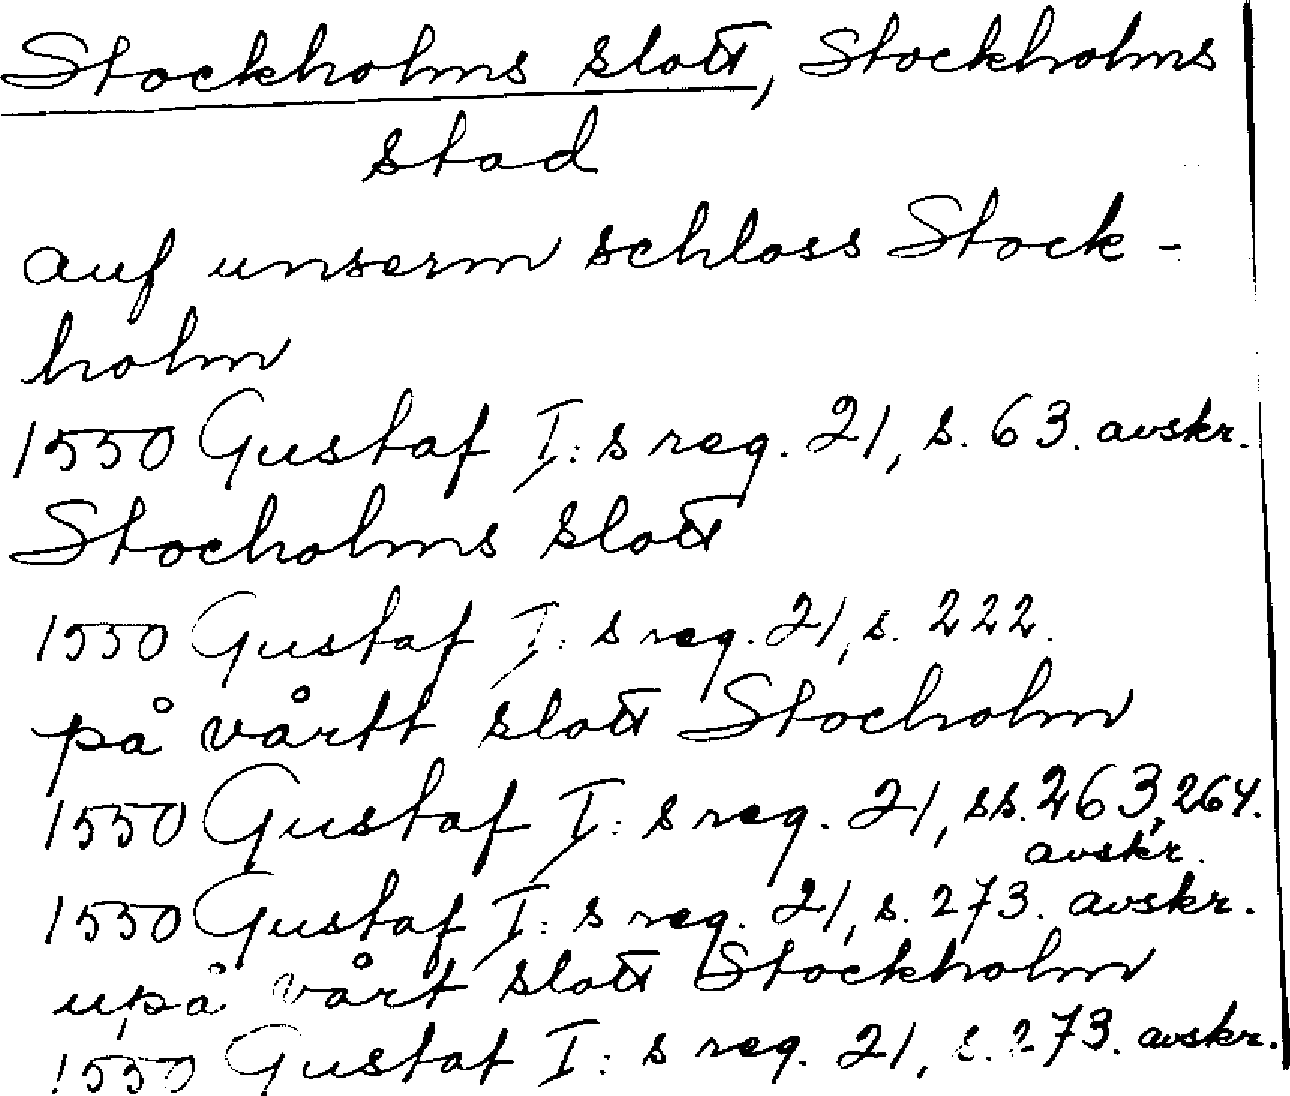 Stockholms slott, Stockholms
stad
auf unserm schloss Stock-
holm
1550 Gustaf I: s reg. 21, s. 63. avskr.
Stocholms slott
1550 Gustaf I: s reg. 21, s. 222.
på vårtt slott Stocholm
1550 Gustaf I: s reg. 21, ss. 263, 264.
avskr.
1550 Gustaf I: s reg. 21, s. 273. avskr.
upå vårt slott Stockholm
1550 Gustaf I: s reg. 21, s. 273. avskr.